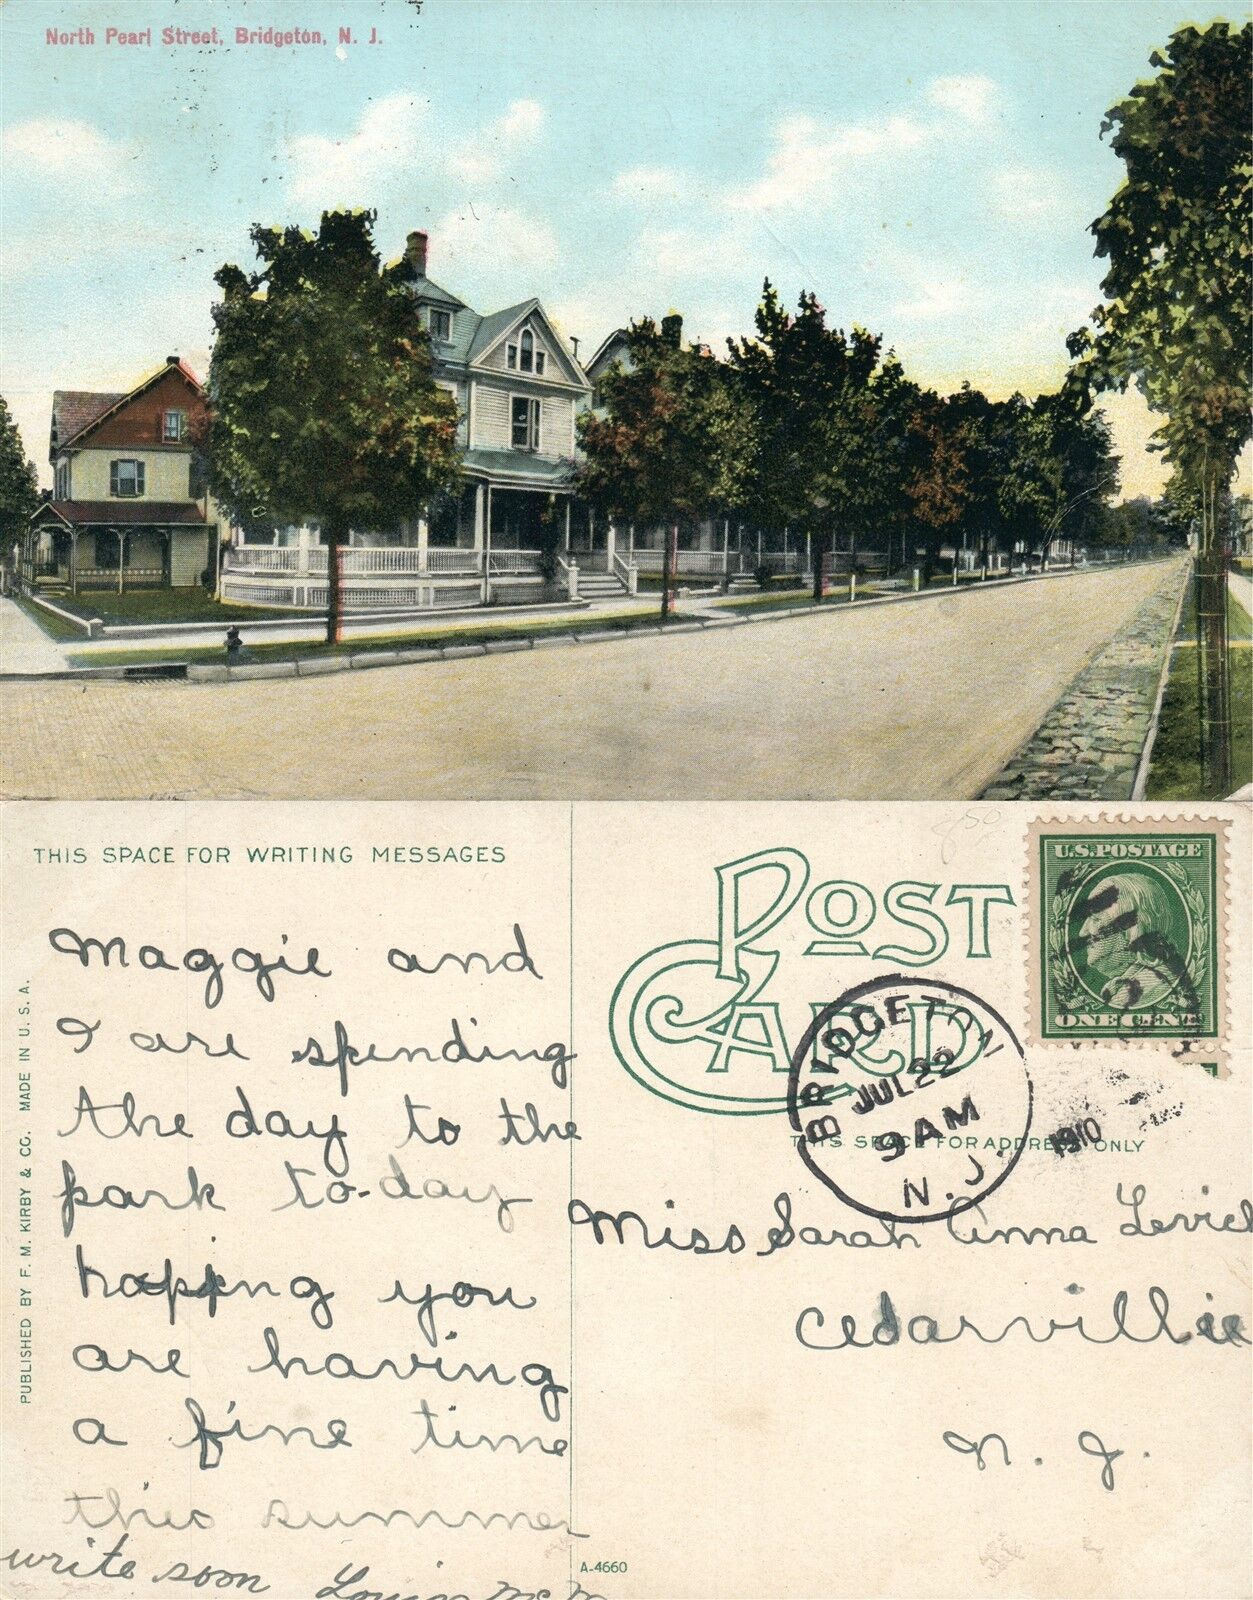 North Pearl Street, Bridgeton, N. J.
THIS SPACE FOR WRITING MESSAGES
Maggie and
I are spending
the day to the
park to-day
hopping you
are having
a fine time
this summer
write soon
PUBLISHED BY F. M. KIRBY & CO. MADE IN U. S. A.
POST
CARD
U.S. POSTAGE
ONE CENT
BRIDGETON
JUL 22
9 AM
1910
N.J.
THIS SPACE FOR ADDRESS ONLY
Miss Sarah Anna
Cedarville
N. J.
A-4660